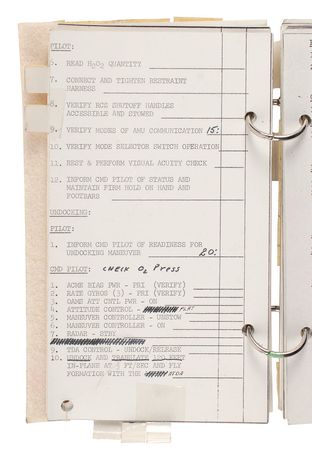 PILOT:
6. READ H2O2 QUANTITY
7. CONNECT AND TIGHTEN RESTRAINT
HARNESS
8. VERIFY RCS SHUTOFF HANDLES
ACCESSIBLE AND STOWED
9. VERIFY MODES OF AMU COMMUNICATION 15:
10. VERIFY MODE SELECTOR SWITCH OPERATION
11. REST & PERFORM VISUAL ACUITY CHECK
12. INFORM CMD PILOT OF STATUS AND
MAINTAIN FIRM HOLD ON HAND AND
FOOTBARS
UNDOCKING:
PILOT:
1. INFORM CMD PILOT OF READINESS FOR
UNDOCKING MANEUVER 20:
CMD PILOT: CHECK O2 Press
1. ACME BIAS PWR - PRI (VERIFY)
2. RATE GYROS (3) - PRI (VERIFY)
3. OAMS ATT CNTL PWR - ON
4. ATTITUDE CONTROL -
5. MANEUVER CONTROLLER - UNSTOW
6. MANEUVER CONTROLLER - ON
7. RADAR - STBY
9. TDA CONTROL - UNDOCK/RELEASE
10. UNDOCK AND TRANSLATE 120 FEET
IN-PLANE AT FT/SEC AND FLY
FORMATION WITH THE